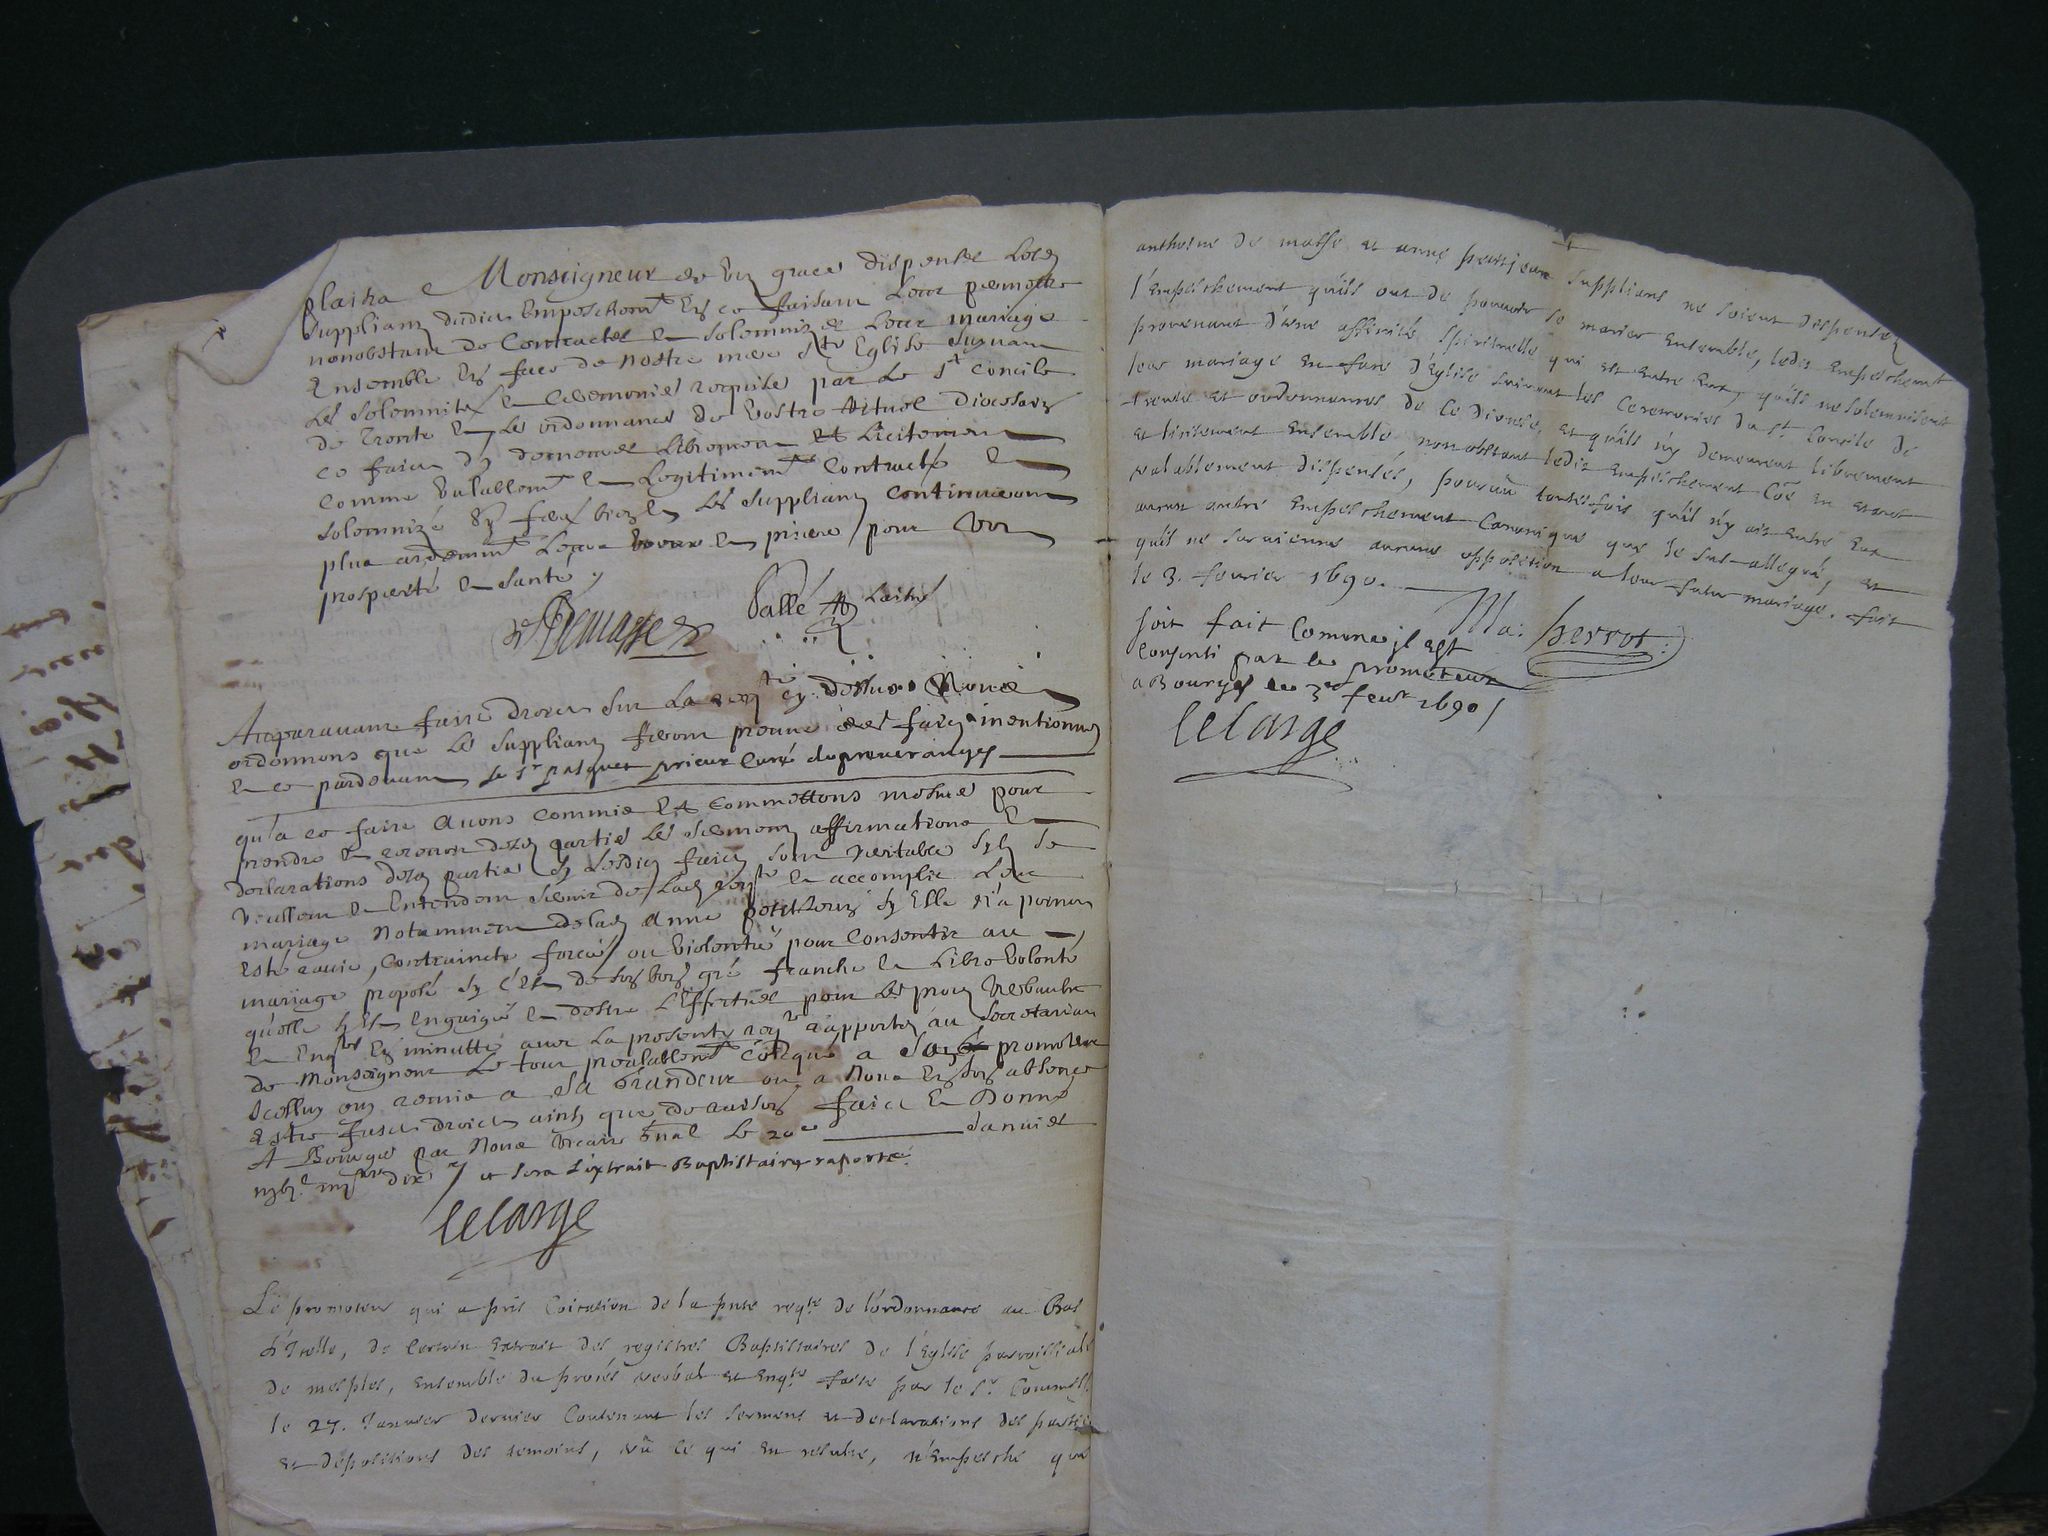 plaira Monseigneur de vos graces dispenser lesd
suppliants dudict empeschemt En ce faisant leur permettre
nonobstant de Contracter et solemnizer leur mariage
Ensemble En face de Nostre mere ste Eglise suyvant
Les solemnitez et Ceremonies requises par Le st Concile
de Trente et Les ordonnances de vostre Rituel Diocesain
ce faict d'y demeurer Librement et Licitement
Comme valablemt et Legitimemt Contracté et
solemnizé Et ferez bien et Les suppliants Continueront
plus ardemmt Leurs voeux et prieres pour vos
prosperité et santé
Demasse
Vallé
Auparavant faire droict sur La reqte cy dessus Nous
ordonnons que Les suppliants feront preuve des faicts mentionnés
et ce pardevant Le sr pasquet prieur Curé de preveranges
qu'a ce faire Avons Commis et Commettons mesme pour
prendre et recevoir desd parties Les sermens affirmations et
declarations desd parties sy Lesdits faicts sont veritables s'ils se
veullent et Entendent servir de Lad reqte et accomplir Leur
mariage Notamment delad Anne petitJean sy Elle n'a point
Esté ravie, Contrainte forcée ou violentée pour Consentir au
mariage proposé sy C'est de son bon gré franche et Libre volonté
qu'elle s'est Engaigée et desire L'effectuer pour Les proces Verbaulx
et Enqtes En minutte avec La presente reqte rapportés au Secretariat
de Monseigneur Le tout prealablemt Coïqué a Son promoteur
Icelluy ouy remis a Sa Grandeur ou a Nous En son absence
Estre faict droict ainsy que de raison faict et Donné
A Bourges par Nous Vicaire gnal Le 20e Janvier
mil six cent quatre vingt dix et sera l'extrait Baptistaire raporté
lelarge
Le promoteur qui a pris Coication de la pnte reqte de l'ordonnance au Bas
d'Icelle, de Certain Extrait des registres Baptistaires de l'Eglise parroissiale
de mesples, Ensemble du procés verbal et Enqte faite par le sr Commiss
le 27. Janvier dernier Contenant les sermens et declarations des parties
et depositions des temoins, vû ce qui En resulte, n'Empesche que
anthoine de masse et anne petitjean supplians ne soient dispensez
l'Empeschement qu'ils ont de pouvoir se marier Ensemble, ledit Empeschement
provenant d'une affinité spirituelle qui est Entre Eux, qu'ils ne solemnisent
leur mariage En face d'Eglise suivant les Ceremonies du st. Concile de
trente et ordonnances de Ce Diocese, et qu'ils n'y demeurent librement
et licitement Ensemble nonobstant ledit Empeschement Coe En Etant
valablement dispensés, pourvû toutesfois qu'il n'y ait Entre Eux
aucun autre Empeschement Canonique que le sus-allegué, et
qu'il ne survienne aucune opposition a leur futur mariage. fait
le 3. fevrier 1690.
Ma: perrot
soit fait Comme il est
consenti par le promoteur
a Bourges le 3e fevr 1690
lelarge